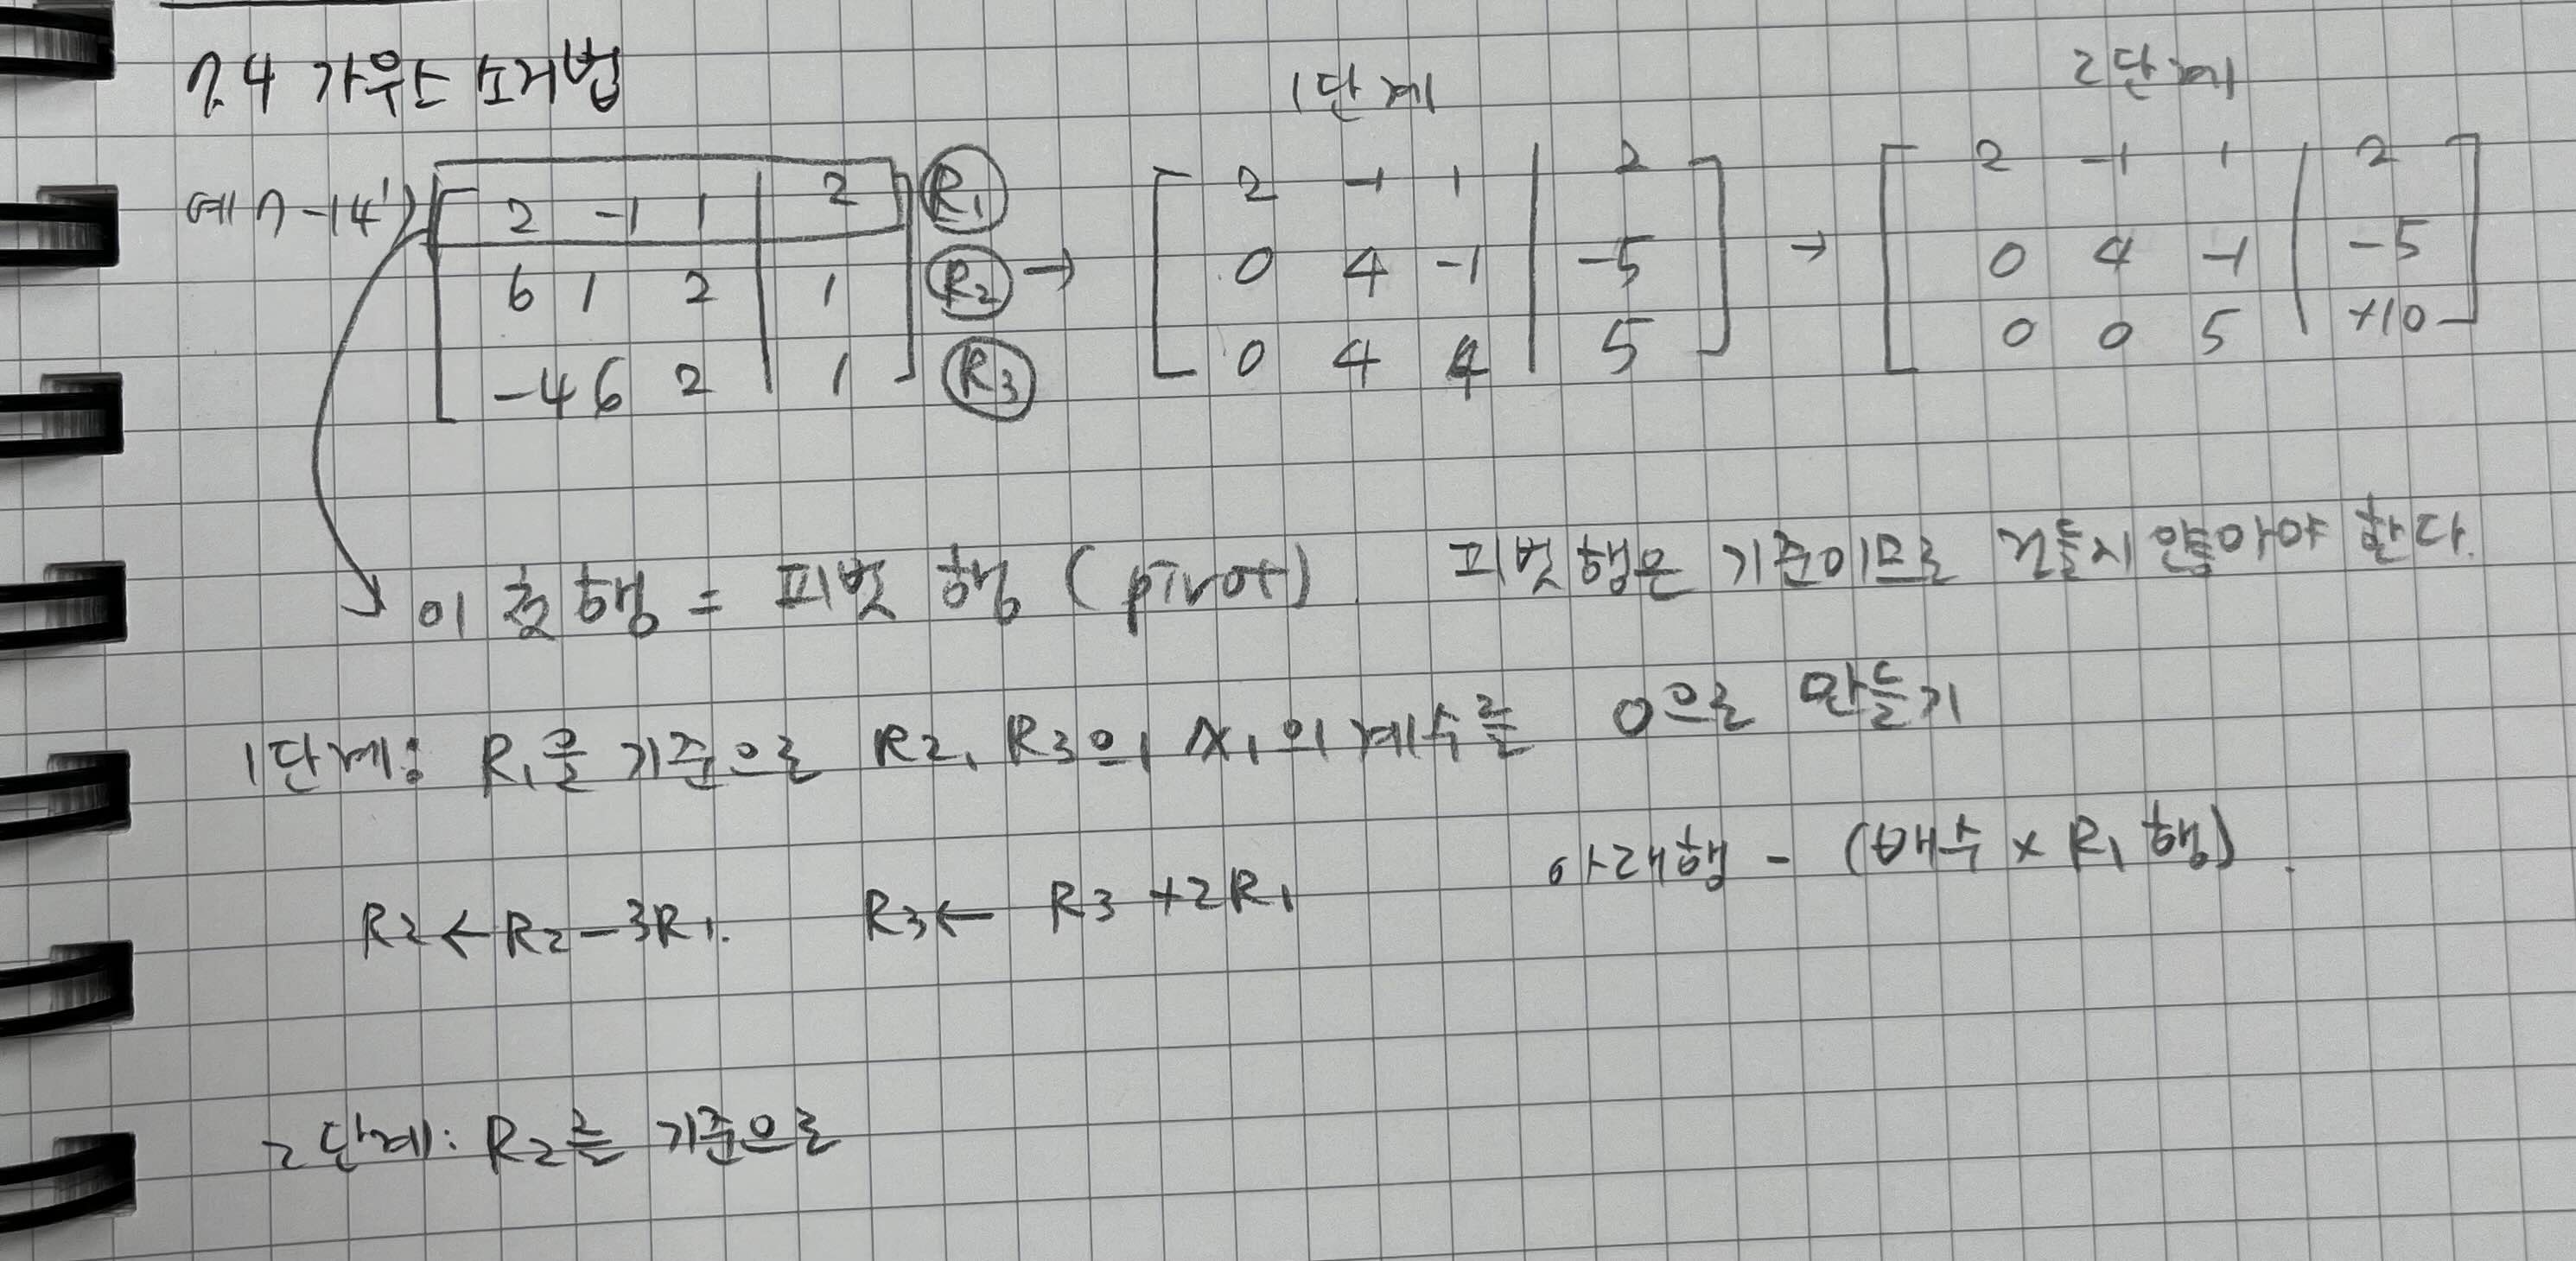 7.4 가우스 소거법
1단계
2단계
예 7-14)
2 -1 1 | 2 R1
6 1 2 | 1 R2 →
-4 6 2 | 1 R3
2 -1 1 | 2
0 4 -1 | -5 →
0 4 4 | 5
2 -1 1 | 2
0 4 -1 | -5
0 0 5 | +10
이 첫 행 = 피벗 행 (pivot) 피벗 행은 기준이므로 건들지 않아야 한다.
1단계: R1을 기준으로 R2, R3의 x1의 계수를 0으로 만들기
R2 ← R2 - 3R1. R3 ← R3 + 2R1 아래행 - (배수 × R1 행).
2단계: R2를 기준으로